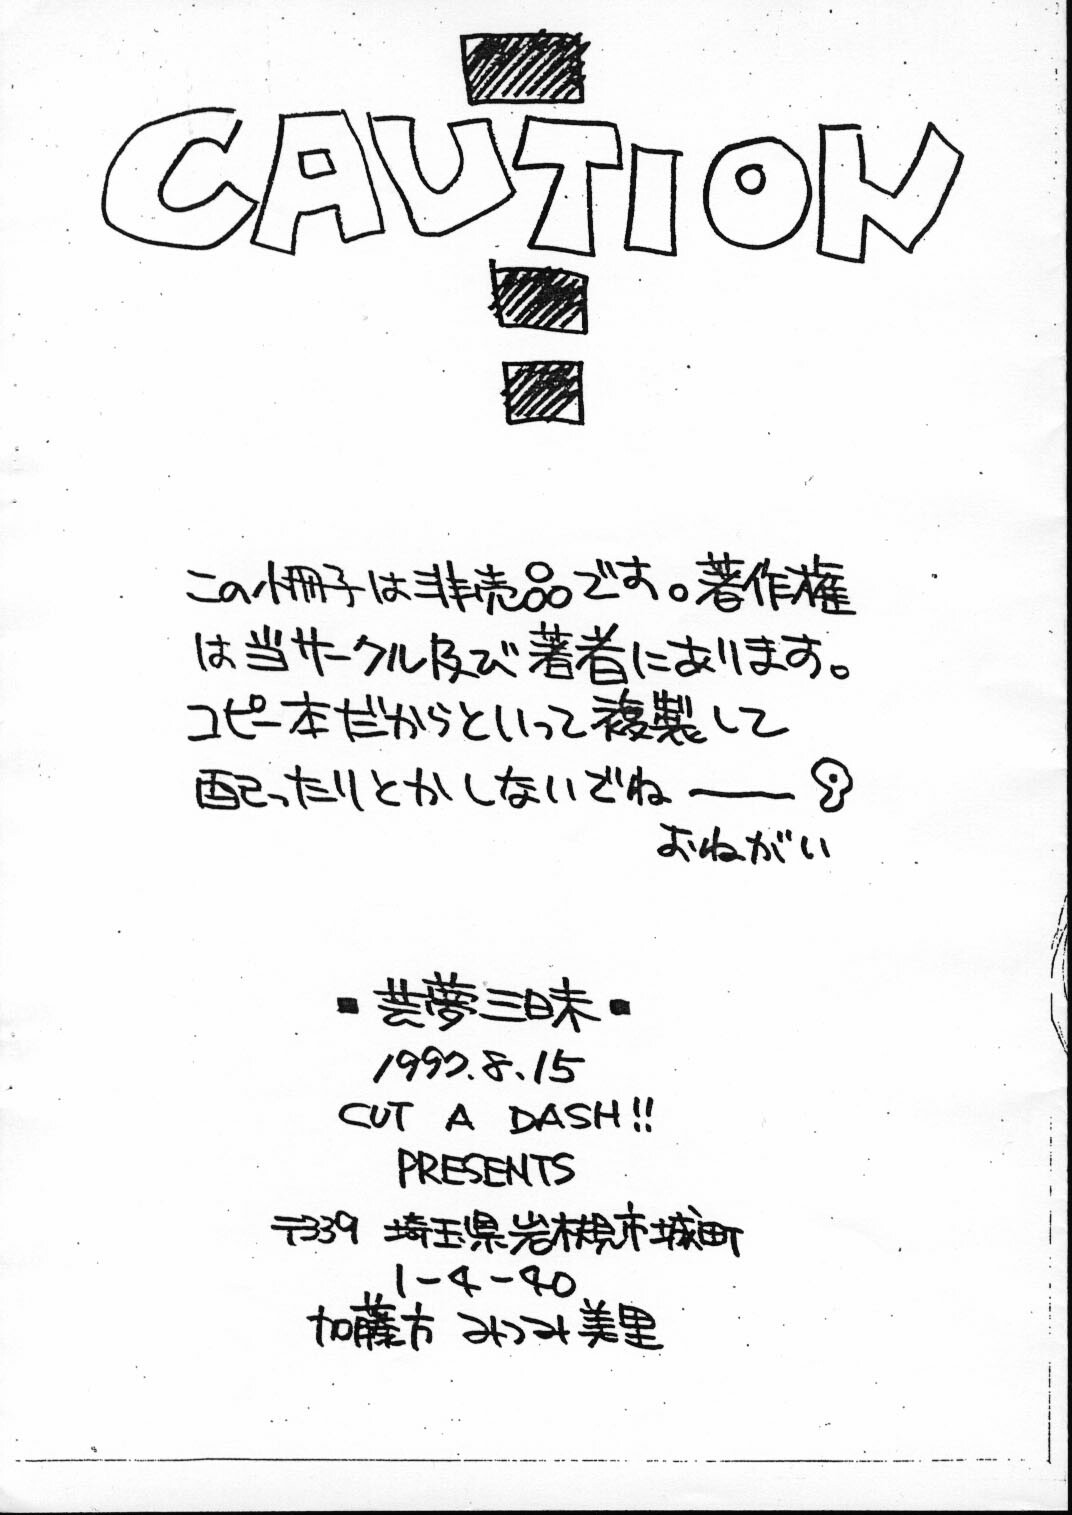 CAUTION
この小冊子は非売品です。著作権
は当サークル及び著者にあります。
コピー本だからといって複製して
配ったりとかしないでね――?
おねがい
■芸夢三昧■
1997.8.15
CUT A DASH!!
PRESENTS
〒339 埼玉県岩槻市城町
1-4-40
加藤方 みつみ美里